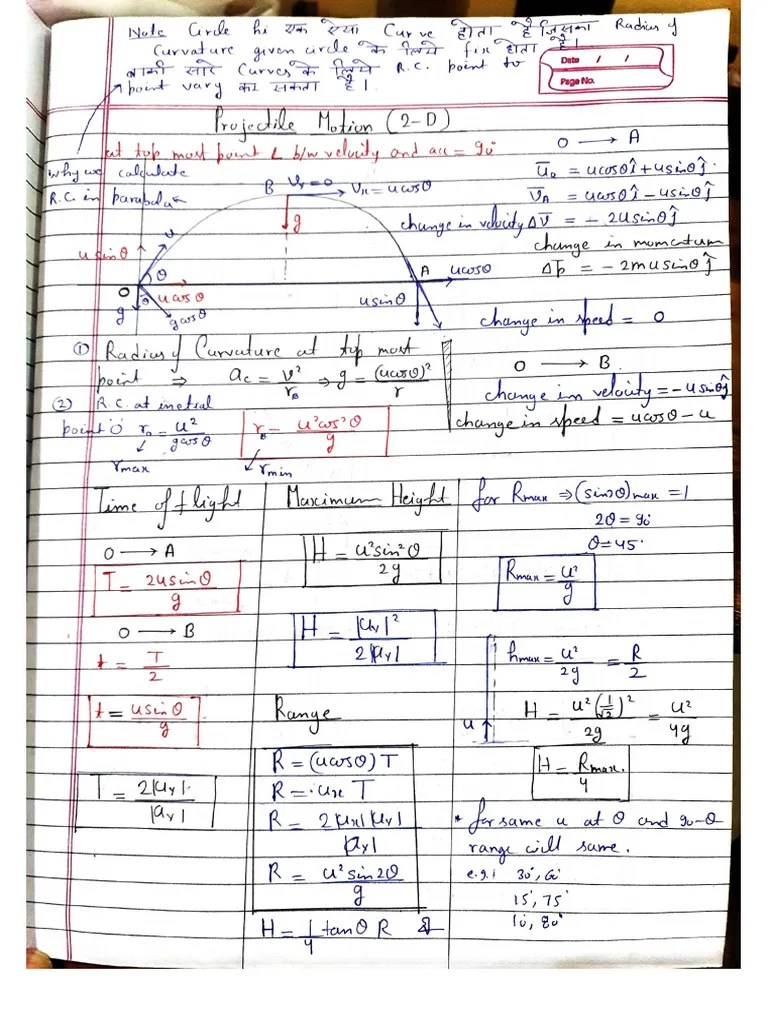 Note Circle hi एक ऐसा Curve होता है जिसका Radius of
Curvature given circle के लिये fix होता है।
बाकी सारे Curves के लिये R.C. point to
point vary कर सकता है।
Date / /
Page No.
Projectile Motion (2-D)
at top most point ∠ b/w velocity and acc = 90°
why we calculate
R.C. in parabola
B Vy=0 Vx = ucosθ
g
u sinθ
u
θ
O
ucosθ
g
θ
gcosθ
A
ucosθ
usinθ
O ⟶ A
u̅o = ucosθî + usinθĵ
v̅A = ucosθî − usinθĵ
change in velocity Δv̅ = − 2usinθĵ
change in momentum
Δp̅ = −2musinθĵ
change in speed = 0
O ⟶ B
change in velocity = −usinθĵ
change in speed = ucosθ − u
① Radius of Curvature at top most
point ⇒ ac = v²/rB ⇒ g = (ucosθ)²/r
② R.C. at inetial
point O ro = u²/gcosθ
rmax
rB = u²cos²θ/g
rmin
Time of flight
O ⟶ A
T = 2usinθ/g
O ⟶ B
t = T/2
t = usinθ/g
T = 2|uy|/|ay|
Maximum Height
H = u²sin²θ/2g
H = |uy|²/2|ay|
Range
R = (ucosθ) T
R = ux T
R = 2|ux||uy|/|ay|
R = u²sin2θ/g
H = 1/4 tanθ R
for Rmax ⇒ (sin2θ)max = 1
2θ = 90°
θ = 45°
Rmax = u²/g
u
hmax = u²/2g = R/2
H = u²(1/√2)²/2g = u²/4g
H = Rmax/4
* for same u at θ and 90−θ
range will same.
e.g.; 30°, 60°
15°, 75°
10°, 80°